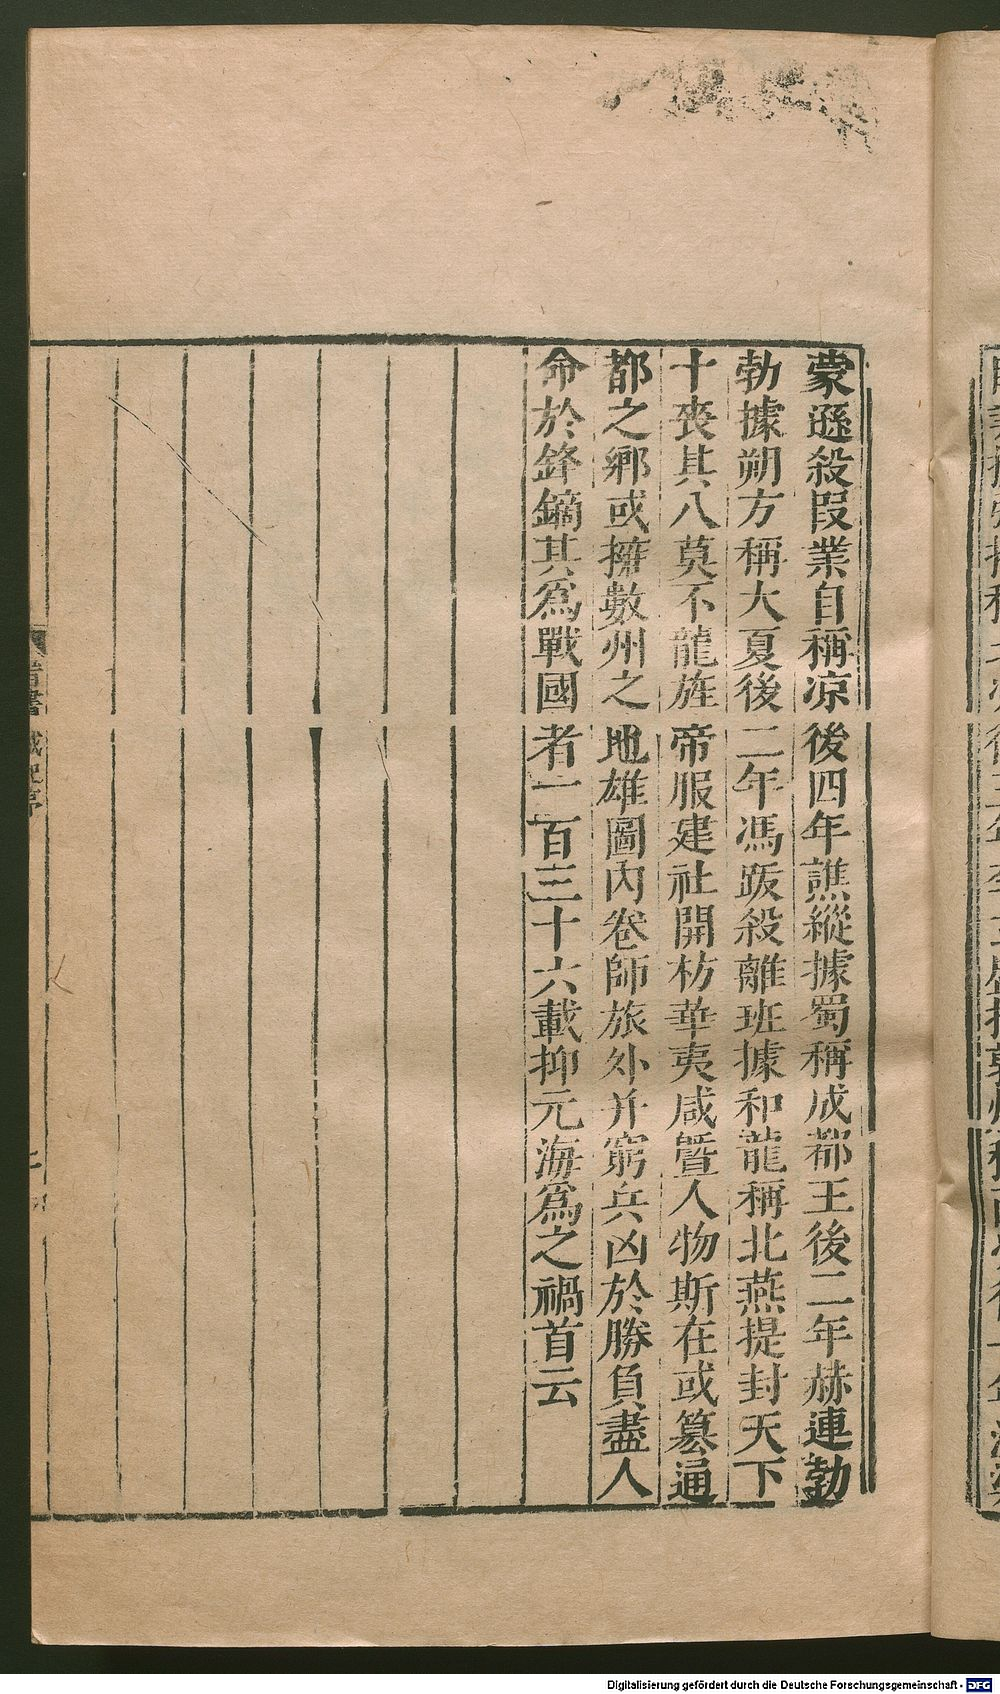 蒙遜殺叚業自稱凉後四年譙縱據蜀稱成都王後二年赫連勃
勃據朔方稱大夏後二年馮跋殺離班據和龍稱北燕提封天下
十喪其八莫不龍旌帝服建社開枋華夷咸曁人物斯在或篡通
都之鄉或擁數州之地雄圖内卷師旅外并窮兵凶於勝負盡人
命於鋒鏑其爲戰國者一百三十六載抑元海爲之禍首云
晉書 載記序
Digitalisierung gefördert durch die Deutsche Forschungsgemeinschaft - DFG